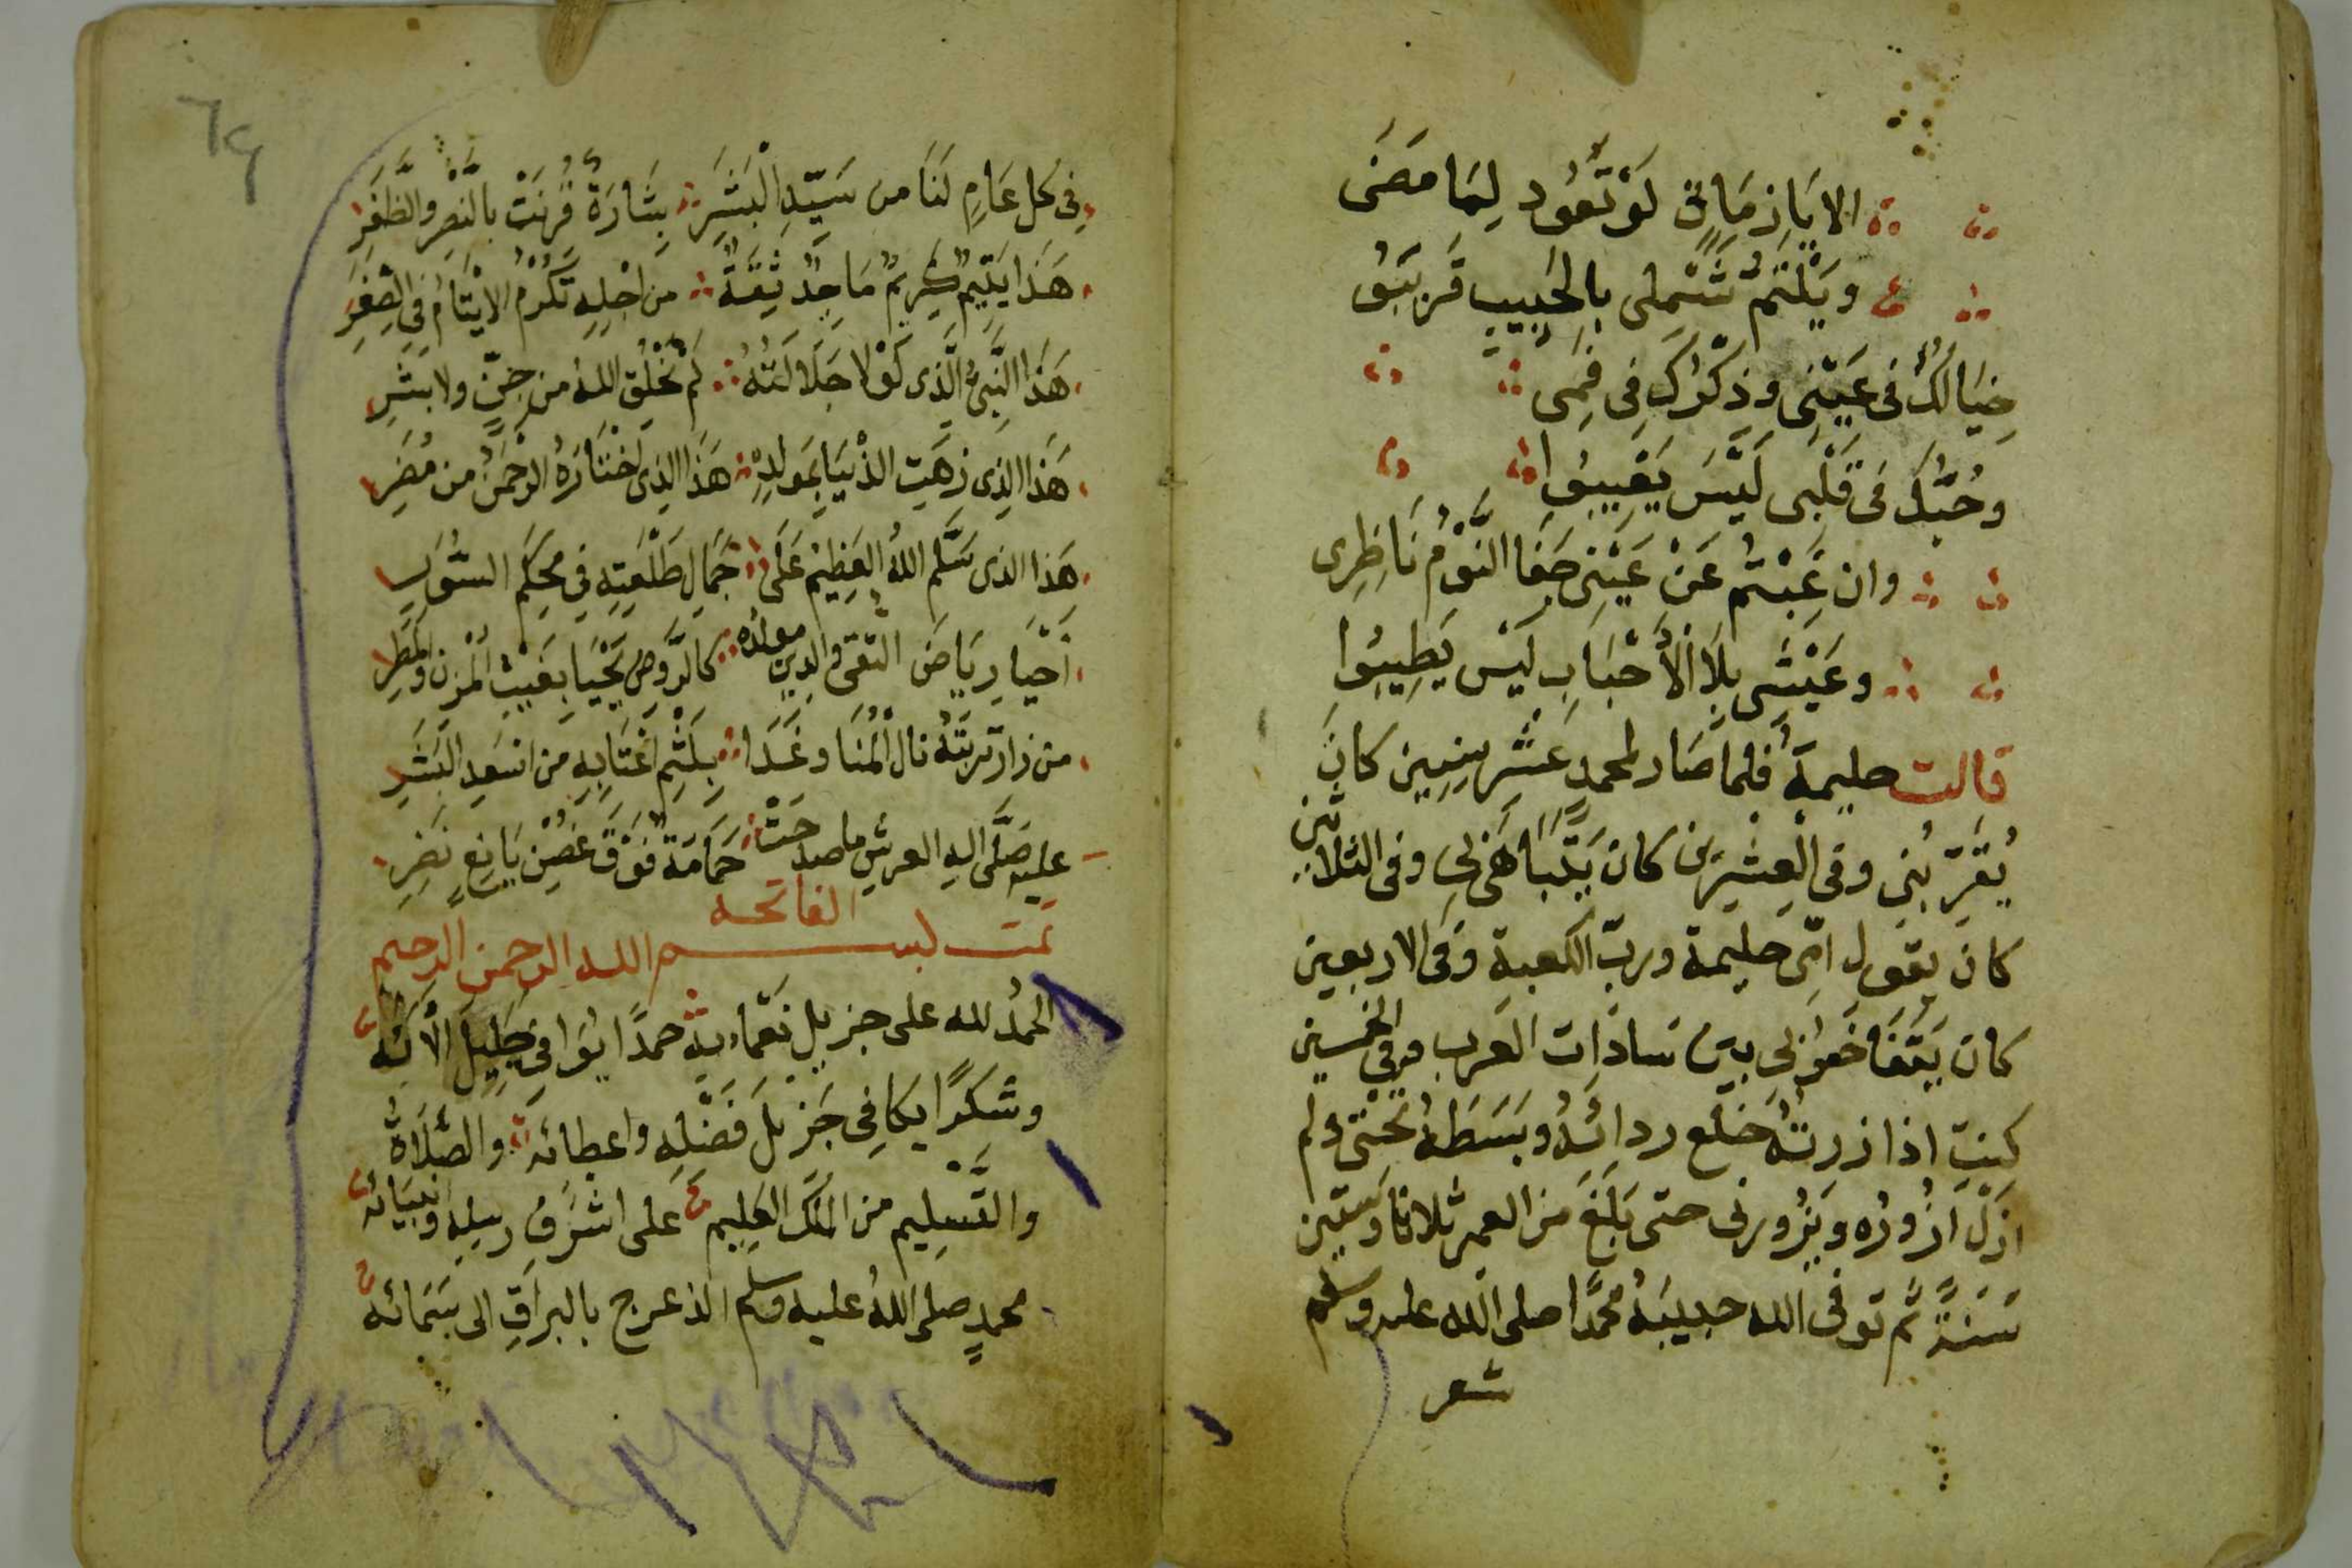 الا يا زماني لو تعود لما مضى
ويلتم شملى بالحبيب قريبُ
خيالك فى عينى وذكرك فى فمى
وحبك فى قلبى ليس يغيبوا
وان غبتم عن عينى جفا النوم ناظرى
وعيشى بلا الأحباب ليس يطيبوا
قالت حليمة فلما صار لمحمد عشر سنين كان
يقر بنى وفى العشرين كان يتباهى بى وفى الثلاثين
كان يقول امى حليمة ورب الكعبة وفى الاربعين
كان يتفاخر بى بين سادات العرب وفى الخمسين
كنت اذا زرته خلع ردائه وبسطه تحتى ولم
ازل ازوره ويزورنى حتى بلغ من العمر ثلاثا وستين
سنة ثم توفى الله حبيبه محمدا صلى الله عليه وسلم
شعر
٦٩
فى كل عام لنا من سيد البشر بشارة قرنت بالنصر والظفر
هذا يتيم كريم ماجد ثقة من اجله تكرم الايتام فى الصغر
هذا النبى الذى لولا جلالته لم يخلق الله من جن ولا بشر
هذا الذى زهت الدنيا بمولده هذا الذى اختاره الرحمن من مضر
هذا الذى سلم الله العظيم على جمال طلعته فى محكم السور
احيا رياض التقى والدين مولده كالروض يحيا بغيث المزن والمطر
من زار تربته نال المنا وغدا بلثم اعتابه من اسعد البشر
عليه صلى اله العرش ما صدحت حمامة فوق غصن يانع نضر
الفاتحه
تمت بسم الله الرحمن الرحيم
الحمد لله على جزيل نعمايه حمدا يوافى جليل الآئه
وشكرا يكافى جزيل فضله واعطائه والصلاة
والتسليم من الملك العليم على اشرف رسله وانبيائه
محمد صلى الله عليه وسلم الذ عرج بالبراق الى سمائه